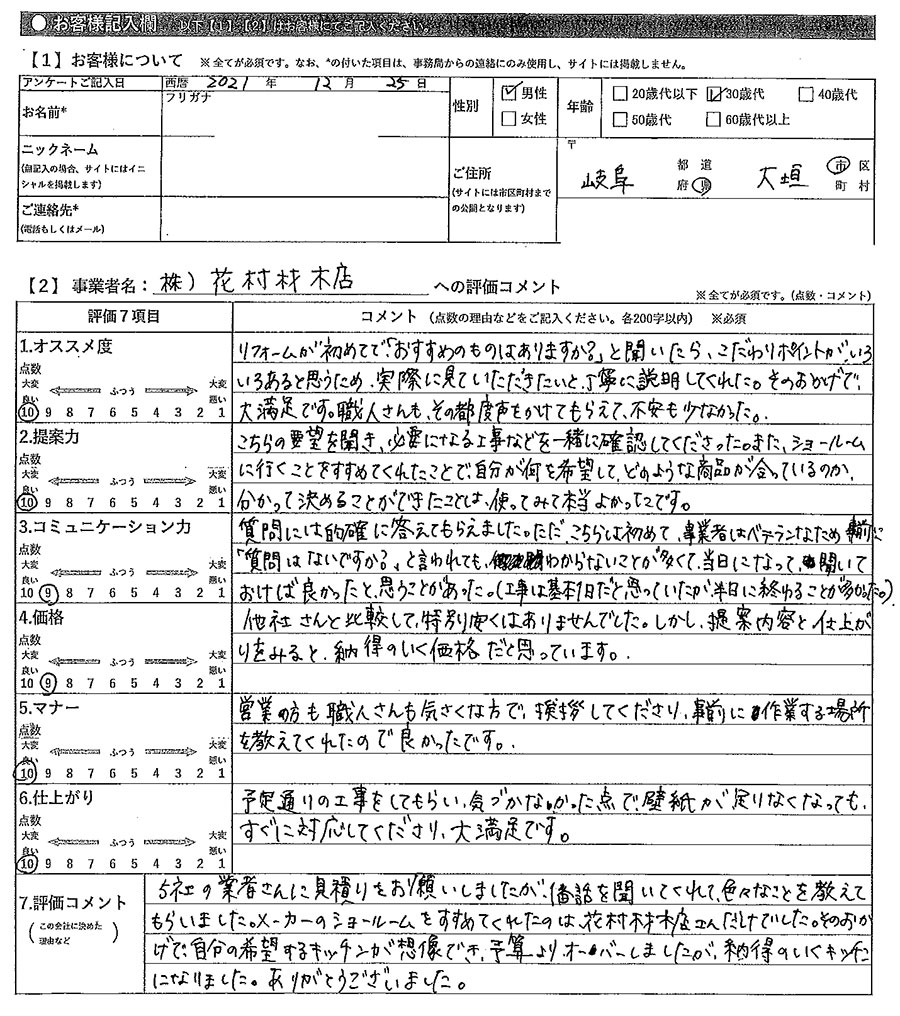 ● お客様記入欄 以下【1】【2】はお客様にてご記入ください。
【1】お客様について ※全てが必須です。なお、*の付いた項目は、事務局からの連絡にのみ使用し、サイトには掲載しません。
アンケートご記入日 西暦 2021 年 12 月 25 日
お名前*
フリガナ
性別
男性
女性
年齢
20歳代以下 30歳代 40歳代
50歳代 60歳代以上
ニックネーム
(無記入の場合、サイトにはイニ
シャルを掲載します)
ご連絡先*
(電話もしくはメール)
ご住所
(サイトには市区町村まで
の公開となります)
〒
岐阜 都 道 府 県 大垣 市 区 町 村
【2】事業者名: 株)花村材木店 への評価コメント
※全てが必須です。(点数・コメント)
評価7項目
コメント (点数の理由などをご記入ください。各200字以内) ※必須
1.オススメ度
点数
大変 ふつう 大変
良い 悪い
10 9 8 7 6 5 4 3 2 1
リフォームが初めてで「おすすめのものはありますか?」と聞いたら、こだわりポイントがいろ
いろあると思うため、実際に見ていただきたいと、丁寧に説明してくれた。そのおかげで、
大満足です。職人さんも、その都度声をかけてもらえて、不安も少なかった。
2.提案力
点数
大変 ふつう 大変
良い 悪い
10 9 8 7 6 5 4 3 2 1
こちらの要望を聞き、必要になる工事などを一緒に確認してくださった。また、ショールーム
に行くことをすすめてくれたことで、自分が何を希望して、どのような商品が合っているのか、
分かって決めることができたことは、使ってみて本当よかったです。
3.コミュニケーション力
点数
大変 ふつう 大変
良い 悪い
10 9 8 7 6 5 4 3 2 1
質問には的確に答えてもらえました。ただ、こちらは初めて、事業者はベテランなため事前に
「質問はないですか?」と言われても、わからないことが多くて、当日になって、聞いて
おけば良かったと、思うことがあった。(工事は基本1日だと思っていたが、半日に終わることが多かった。)
4.価格
点数
大変 ふつう 大変
良い 悪い
10 9 8 7 6 5 4 3 2 1
他社さんと比較して、特別安くはありませんでした。しかし、提案内容と仕上が
りをみると、納得のいく価格だと思っています。
5.マナー
点数
大変 ふつう 大変
良い 悪い
10 9 8 7 6 5 4 3 2 1
営業の方も職人さんも気さくな方で、挨拶してくださり、事前に作業する場所
を教えてくれたので良かったです。
6.仕上がり
点数
大変 ふつう 大変
良い 悪い
10 9 8 7 6 5 4 3 2 1
予定通りの工事をしてもらい、気づかなかった点で、壁紙が足りなくなっても、
すぐに対応してくださり、大満足です。
7.評価コメント
(この会社に決めた
理由など)
5社の業者さんに見積りをお願いしましたが、話を聞いてくれて、色々なことを教えて
もらいました。メーカーのショールームをすすめてくれたのは、花村材木店さんだけでした。そのおか
げで、自分の希望するキッチンが想像でき、予算よりオーバーしましたが、納得のいくキッチン
になりました。ありがとうございました。